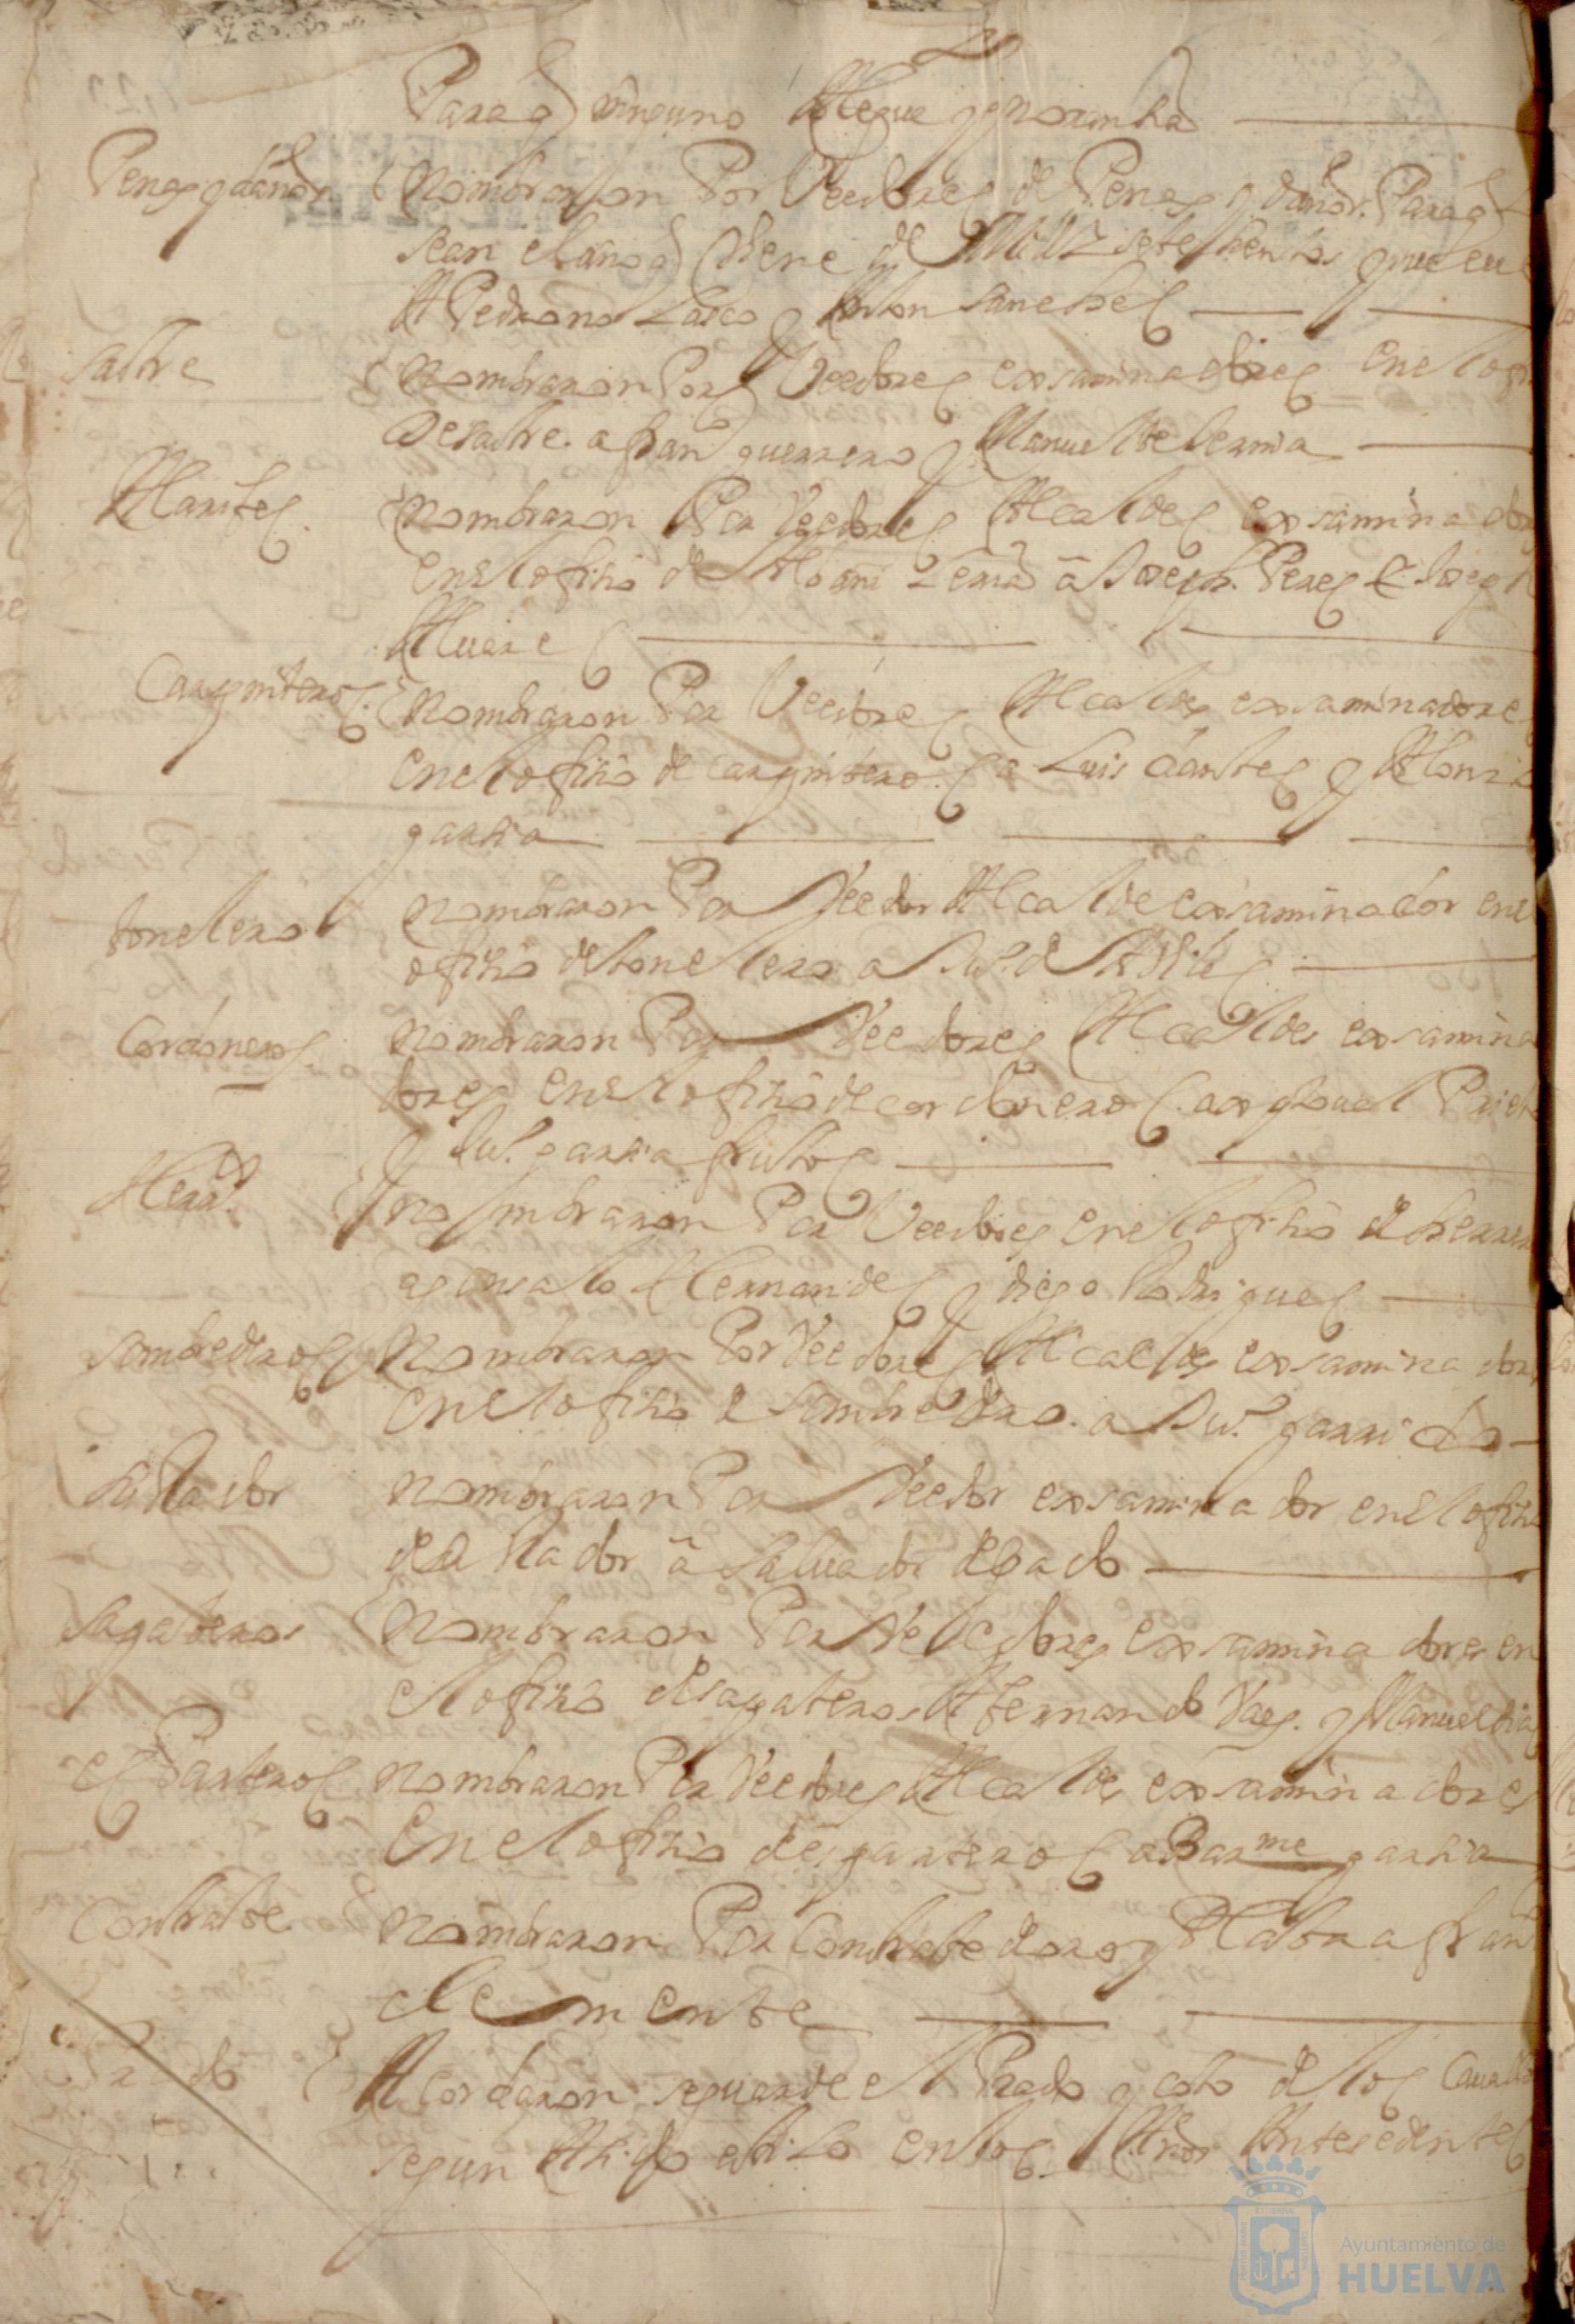 Para q ninguno Alegue ygnoranzia
Penas y daños
nombraron Por Veedores de Penas y daños. Para q
sean el año q viene de Mill setesientos y nueue
A Pedro no Lasco y Anton sanches
sastre
nombraron Por Veedores exsaminadores en el ofizio
De sastre. a fran guerrero y Manuel de lerma
Alarifes.
nombraron Por Veedores Alcaldes exsaminadores
en el ofizio de Albañilería a Joseph Peres
Carpinteros.
nombraron Por Veedores Alcaldes exsaminadores
en el ofizio de carpinteros a Luis y Alonzo
garzia
tonelero
nombraron Por Veedor Alcalde exsaminador en el
ofizio de tonelero a Ju.º de
Cordoneros
nombraron Por Veedores Alcaldes exsamina
dores en el ofizio de cordoneros a Prieto
y Ju.º garzia frutos
Herr.
nombraron Por Veedores en el ofizio de herrero
a gonsalo Hernandes y diego Rodrigues
sombrederos
nombraron Por Veedores Alcaldes exsaminadores
en el ofizio de sombredero. a Ju.º garrido
nombraron Por Veedor exsaminador en el ofizio
a saluador
sapateros
nombraron Por Veedores exsaminadores en
el ofizio de sapateros A fernando Vaes. y Manuel dias
esParteros
nombraron Por Veedores Alcaldes exsaminadores
En el ofizio de esparteros a Barme garzia
Contraste
nombraron Por Contraste de oro y Plata a fran
clemente
Prado
Acordaron se guarde el Prado y coto de los Cauallos
segun A sido estilo en los Años Antesedentes
Ayuntamiento de
HUELVA